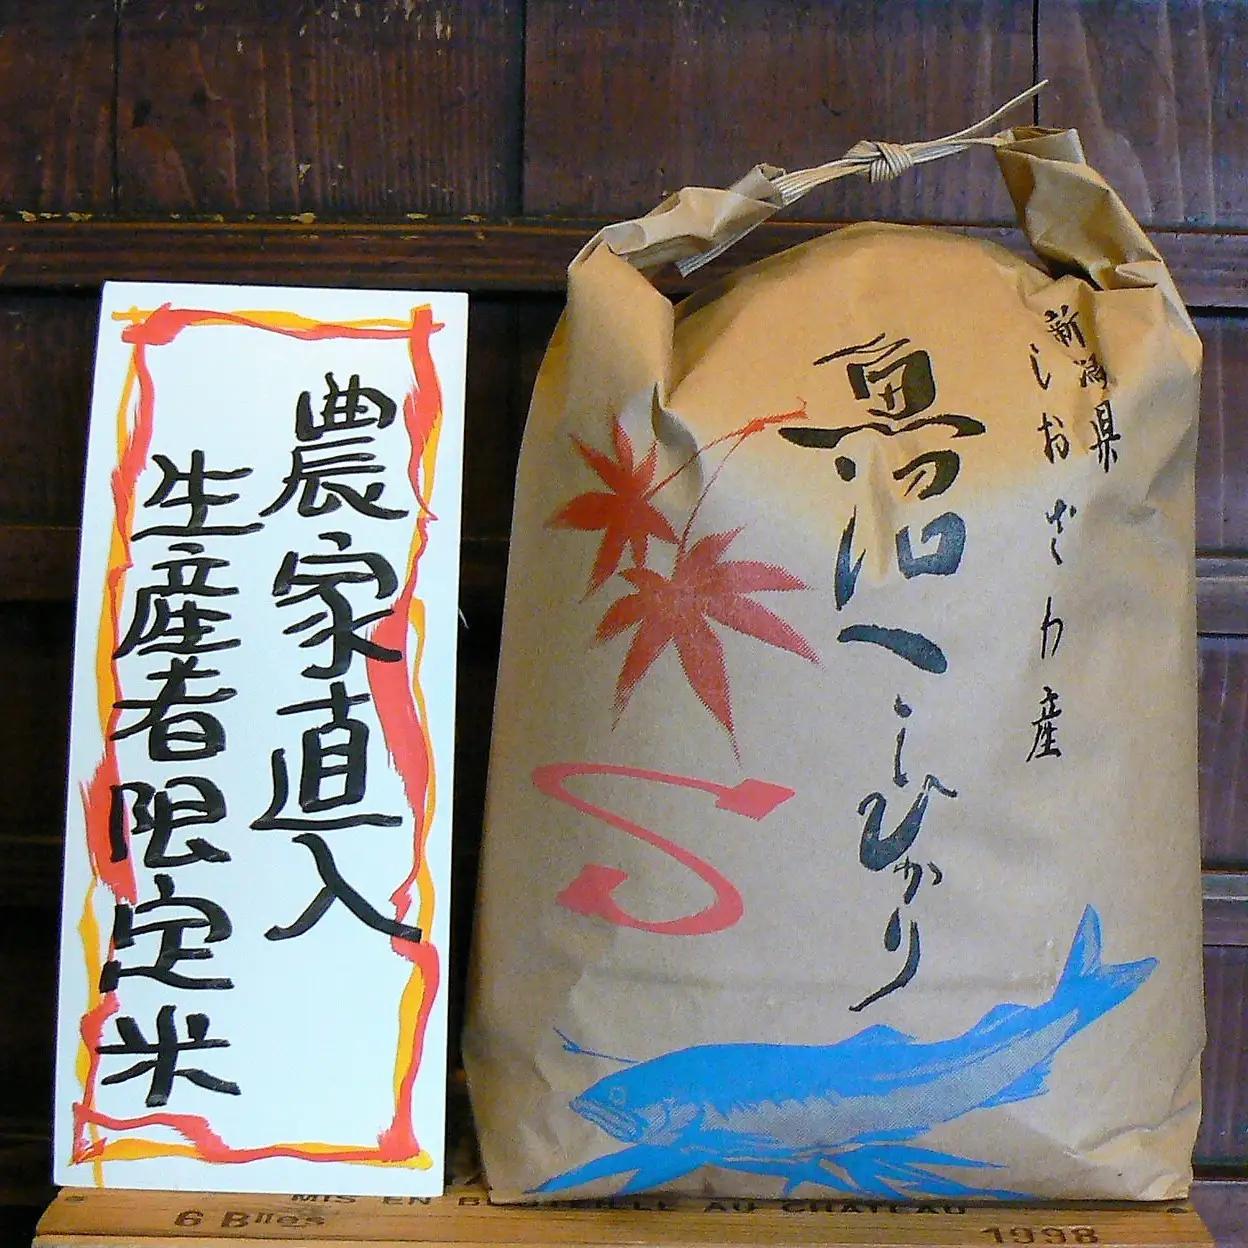 農家直入
生産者限定米
新潟県
しおざわ産
魚沼こしひかり
MIS EN BOUTEILLE AU CHATEAU
6 Blles
1998